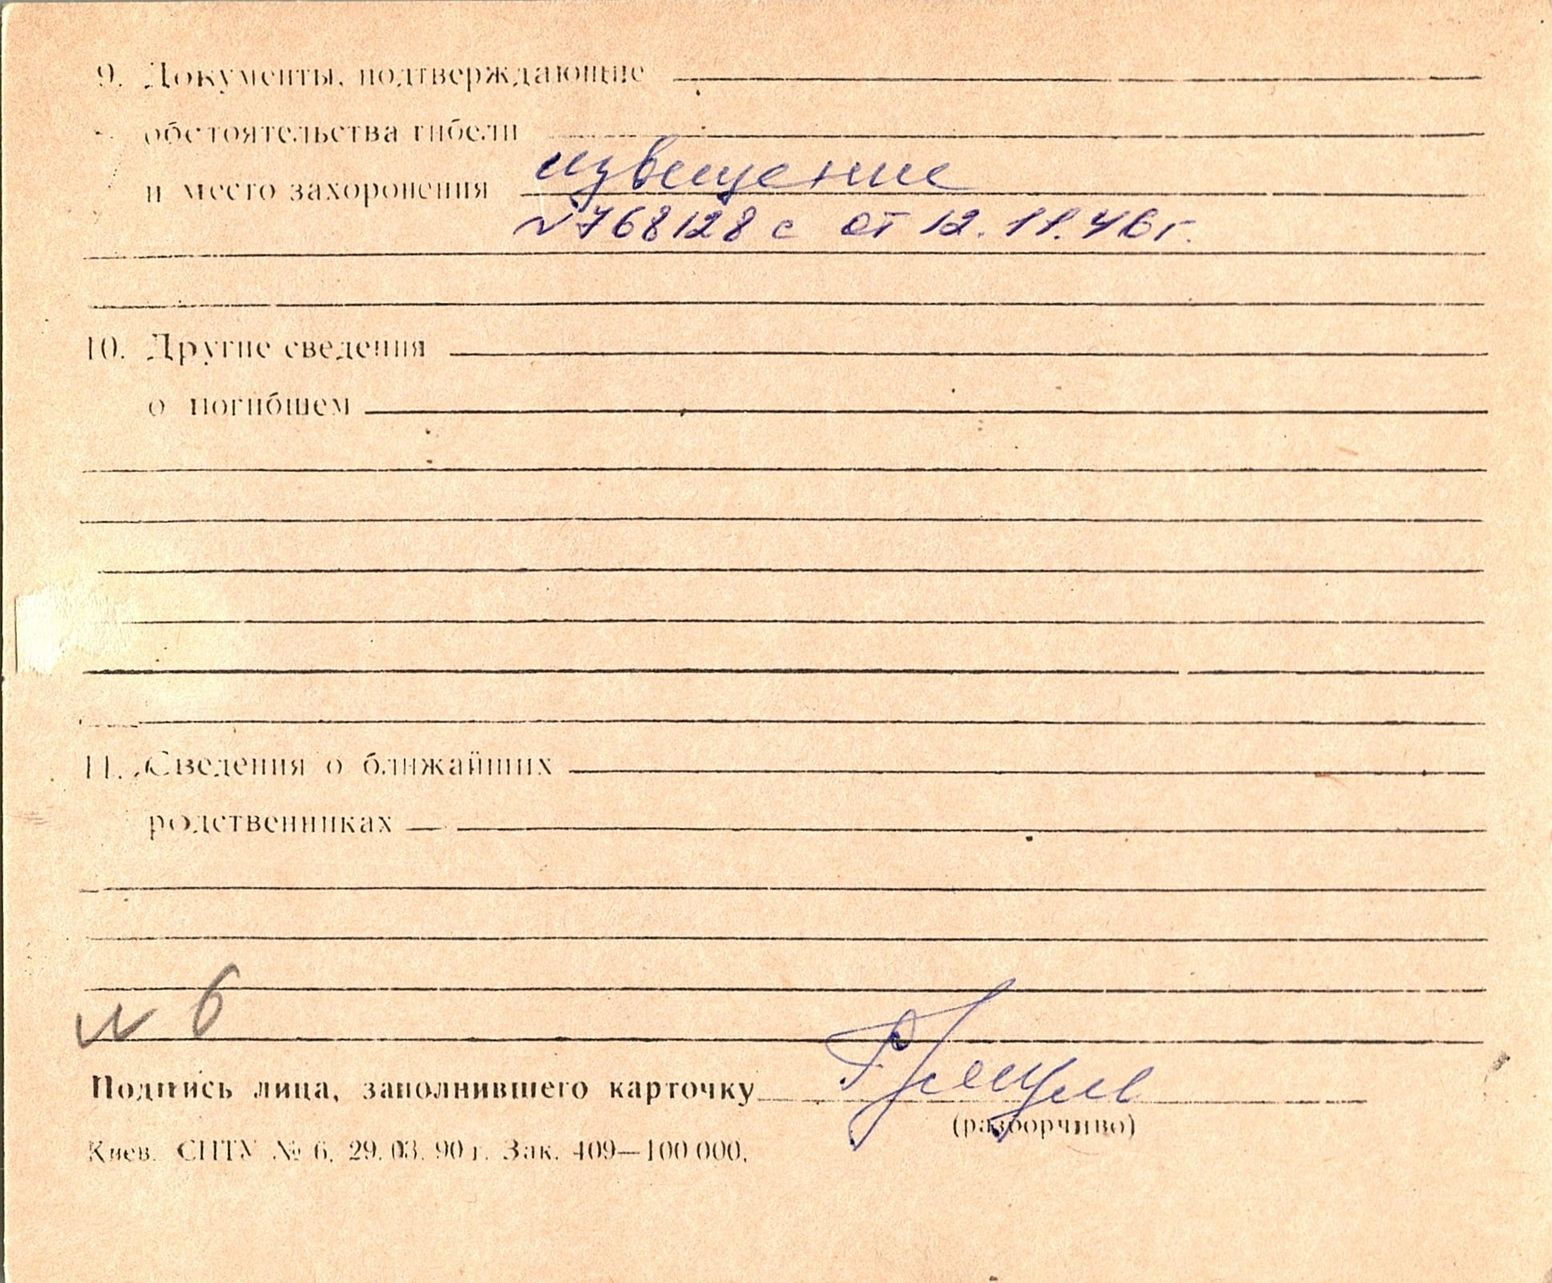 9. Документы, подтверждающие
обстоятельства гибели
и место захоронения извещение
№768128 с от 12.11.46 г.
10. Другие сведения
о погибшем
11. Сведения о ближайших
родственниках
№ 6
Подпись лица, заполнившего карточку
(разборчиво)
Киев. СПТУ № 6. 29.03.90 г. Зак. 409—100 000.